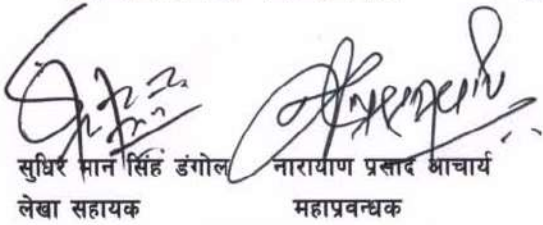 सुधिर मान सिंह डंगोल नारायाण प्रसाद आचार्य
लेखा सहायक महाप्रवन्धक